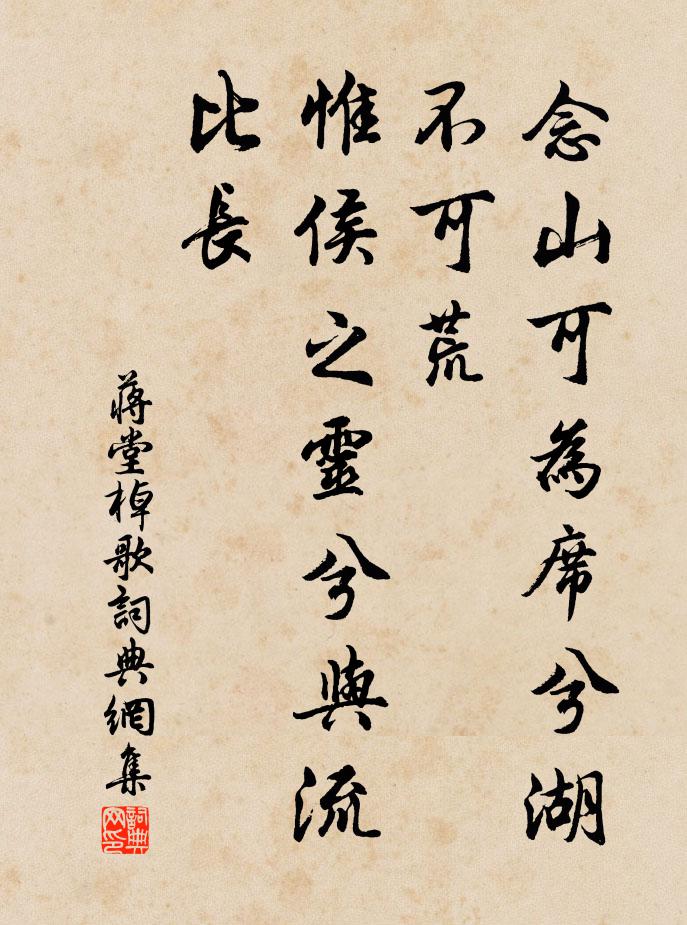 念山可為席兮湖
不可荒
惟侯之靈兮與流
比長
蔣堂棹歌詞典網集
詞典網印